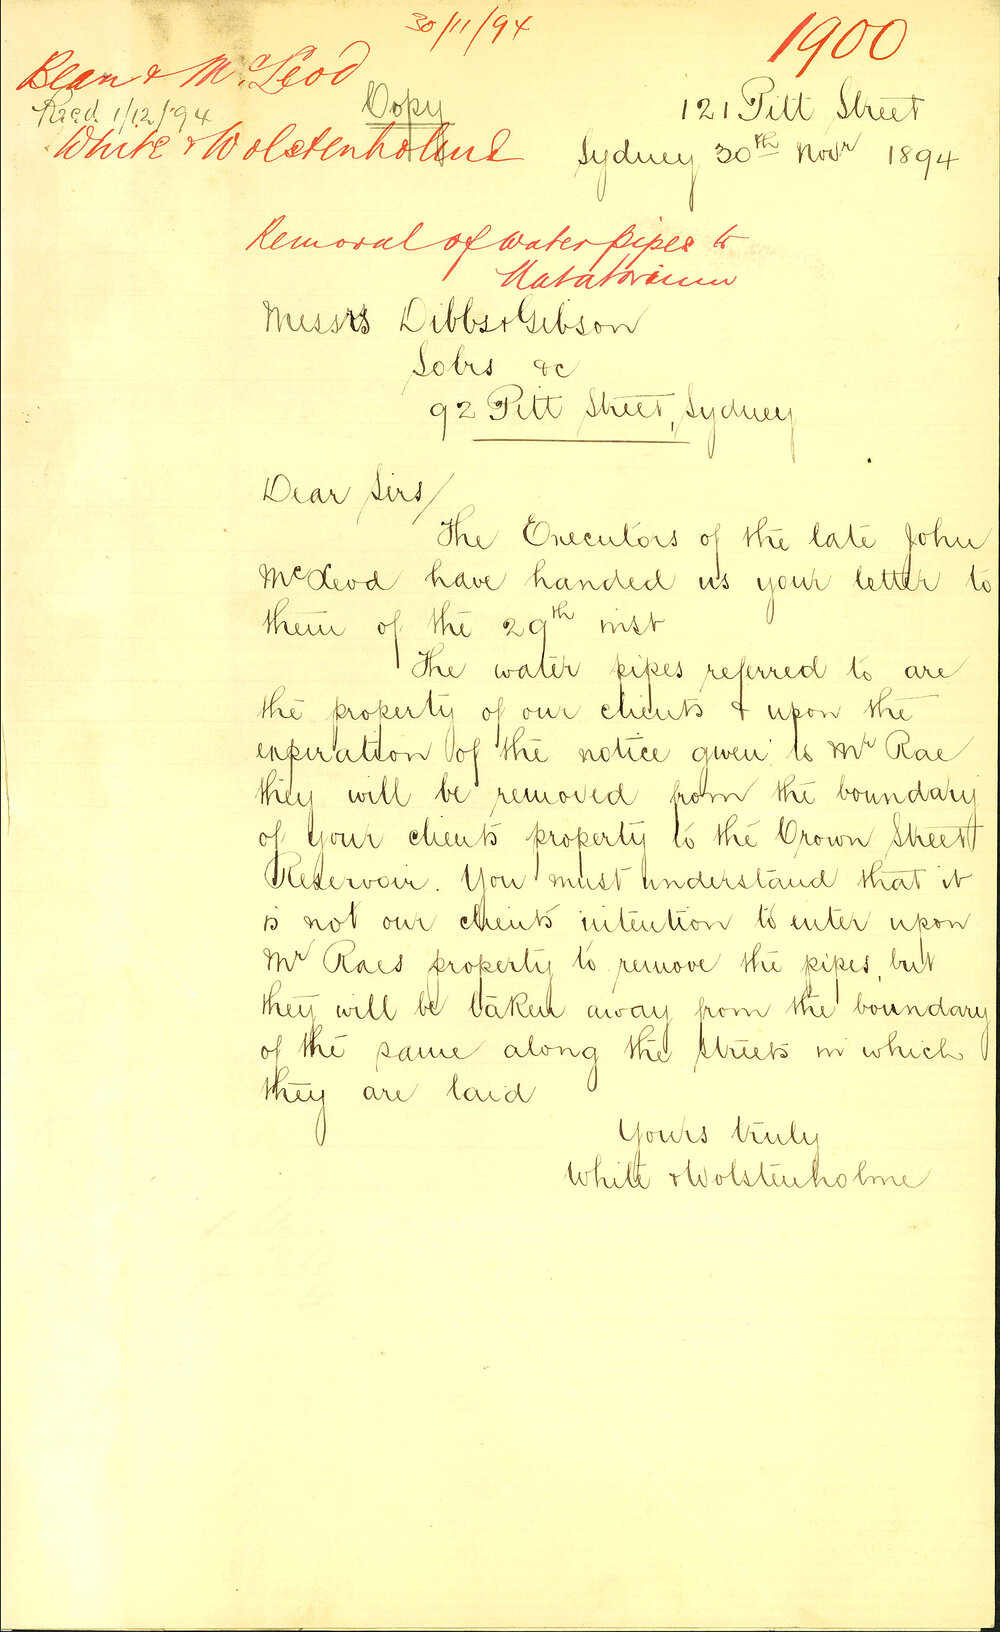 30/11/94
1900
Bean & McLeod
Copy
121 Pitt Street
Recd. 1/12/94
White & Wolstenholme
Sydney 30th Novr 1894
Removal of water pipes to
Natatorium
Messrs Dibbs & Gibson
Solrs &c
92 Pitt Street, Sydney
Dear Sirs/
The Executors of the late John
McLeod have handed us your letter to
them of the 29th inst
The water pipes referred to are
the property of our clients & upon the
expiration of the notice given to Mr Rae
they will be removed from the boundary
of your clients property to the Crown Street
Reservoir. You must understand that it
is not our clients intention to enter upon
Mr Raes property to remove the pipes, but
they will be taken away from the boundary
of the same along the streets in which
they are laid
Yours truly
White & Wolstenholme